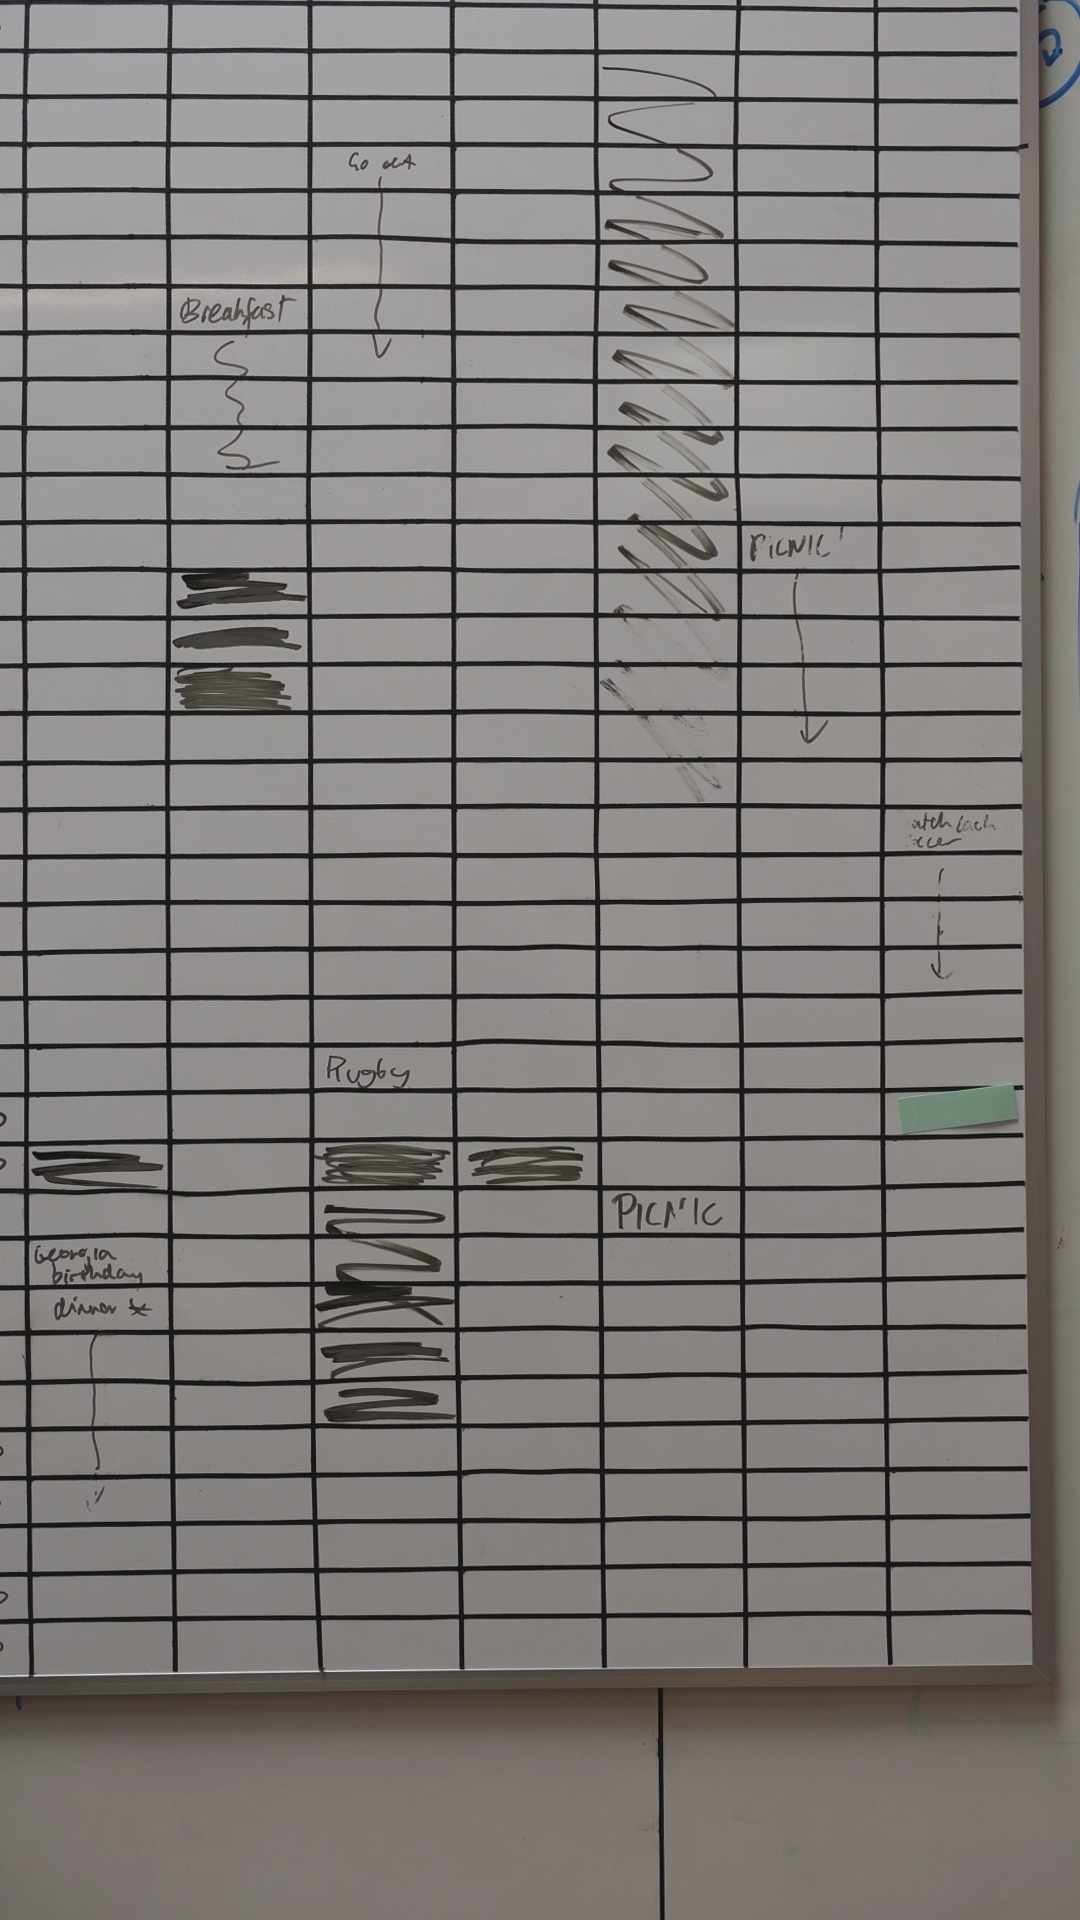 Go out
Breakfast
PICNIC
Rugby
PICNIC
Georgia
birthday
dinner